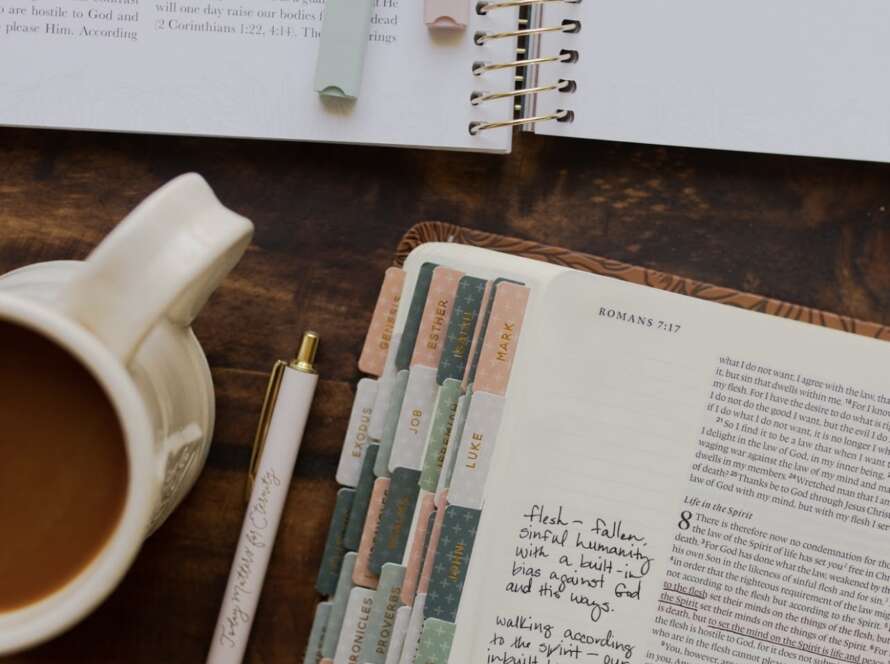 are hostile to God and
please Him. According
will one day raise our bodies
dead
(2 Corinthians 1:22, 4:14). The
rings
GENESIS
ESTHER
ISAIAH
MARK
EXODUS
JOB
JEREMIAH
LUKE
PSALMS
JOHN
CHRONICLES
PROVERBS
Today Matters for Eternity
ROMANS 7:17
what I do not want, I agree with the law, tha
it, but sin that dwells within me. 18 For I know
my flesh. For I have the desire to do what is
I do not do the good I want, but the evil I do
if I do what I do not want, it is no longer I
21 So I find it to be a law that when I want
I delight in the law of God, in my inner being,
waging war against the law of my mind and
dwells in my members. 24 Wretched man that I am
of death? 25 Thanks be to God through Jesus Christ
law of God with my mind, but with my flesh I se
Life in the Spirit
8 There is therefore now no condemnation for th
the law of the Spirit of life has set you free in Ch
of death. 3 For God has done what the law, weakened by th
his own Son in the likeness of sinful flesh and for sin,
in order that the righteous requirement of the law mig
not according to the flesh but according to the Spirit.
to the flesh set their minds on the things of the flesh, but
the Spirit set their minds on the things of the Spirit. 6 For
is death, but to set the mind on the Spirit is life and pea
the flesh is hostile to God, for it does not
who are in the flesh cannot please
9 You, however, are
flesh – fallen,
sinful humanity
with a built-in
bias against God
and His ways.
walking according
to the spirit – our
inbuilt